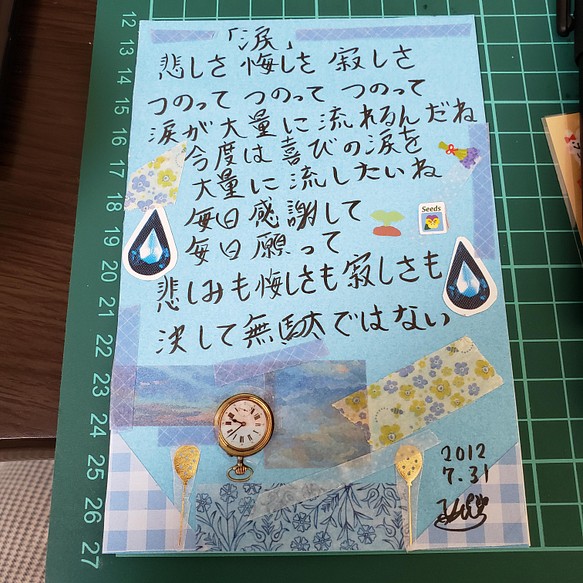 12
13
14
15
16
17
18
19
20
21
22
23
24
25
26
27
「涙」
悲しさ 悔しさ 寂しさ
つのって つのって つのって
涙が大量に流れるんだね
今度は喜びの涙を
大量に流したいね
毎日感謝して
毎日願って
Seeds
悲しみも悔しさも寂しさも
決して無駄ではない
2012
7.31